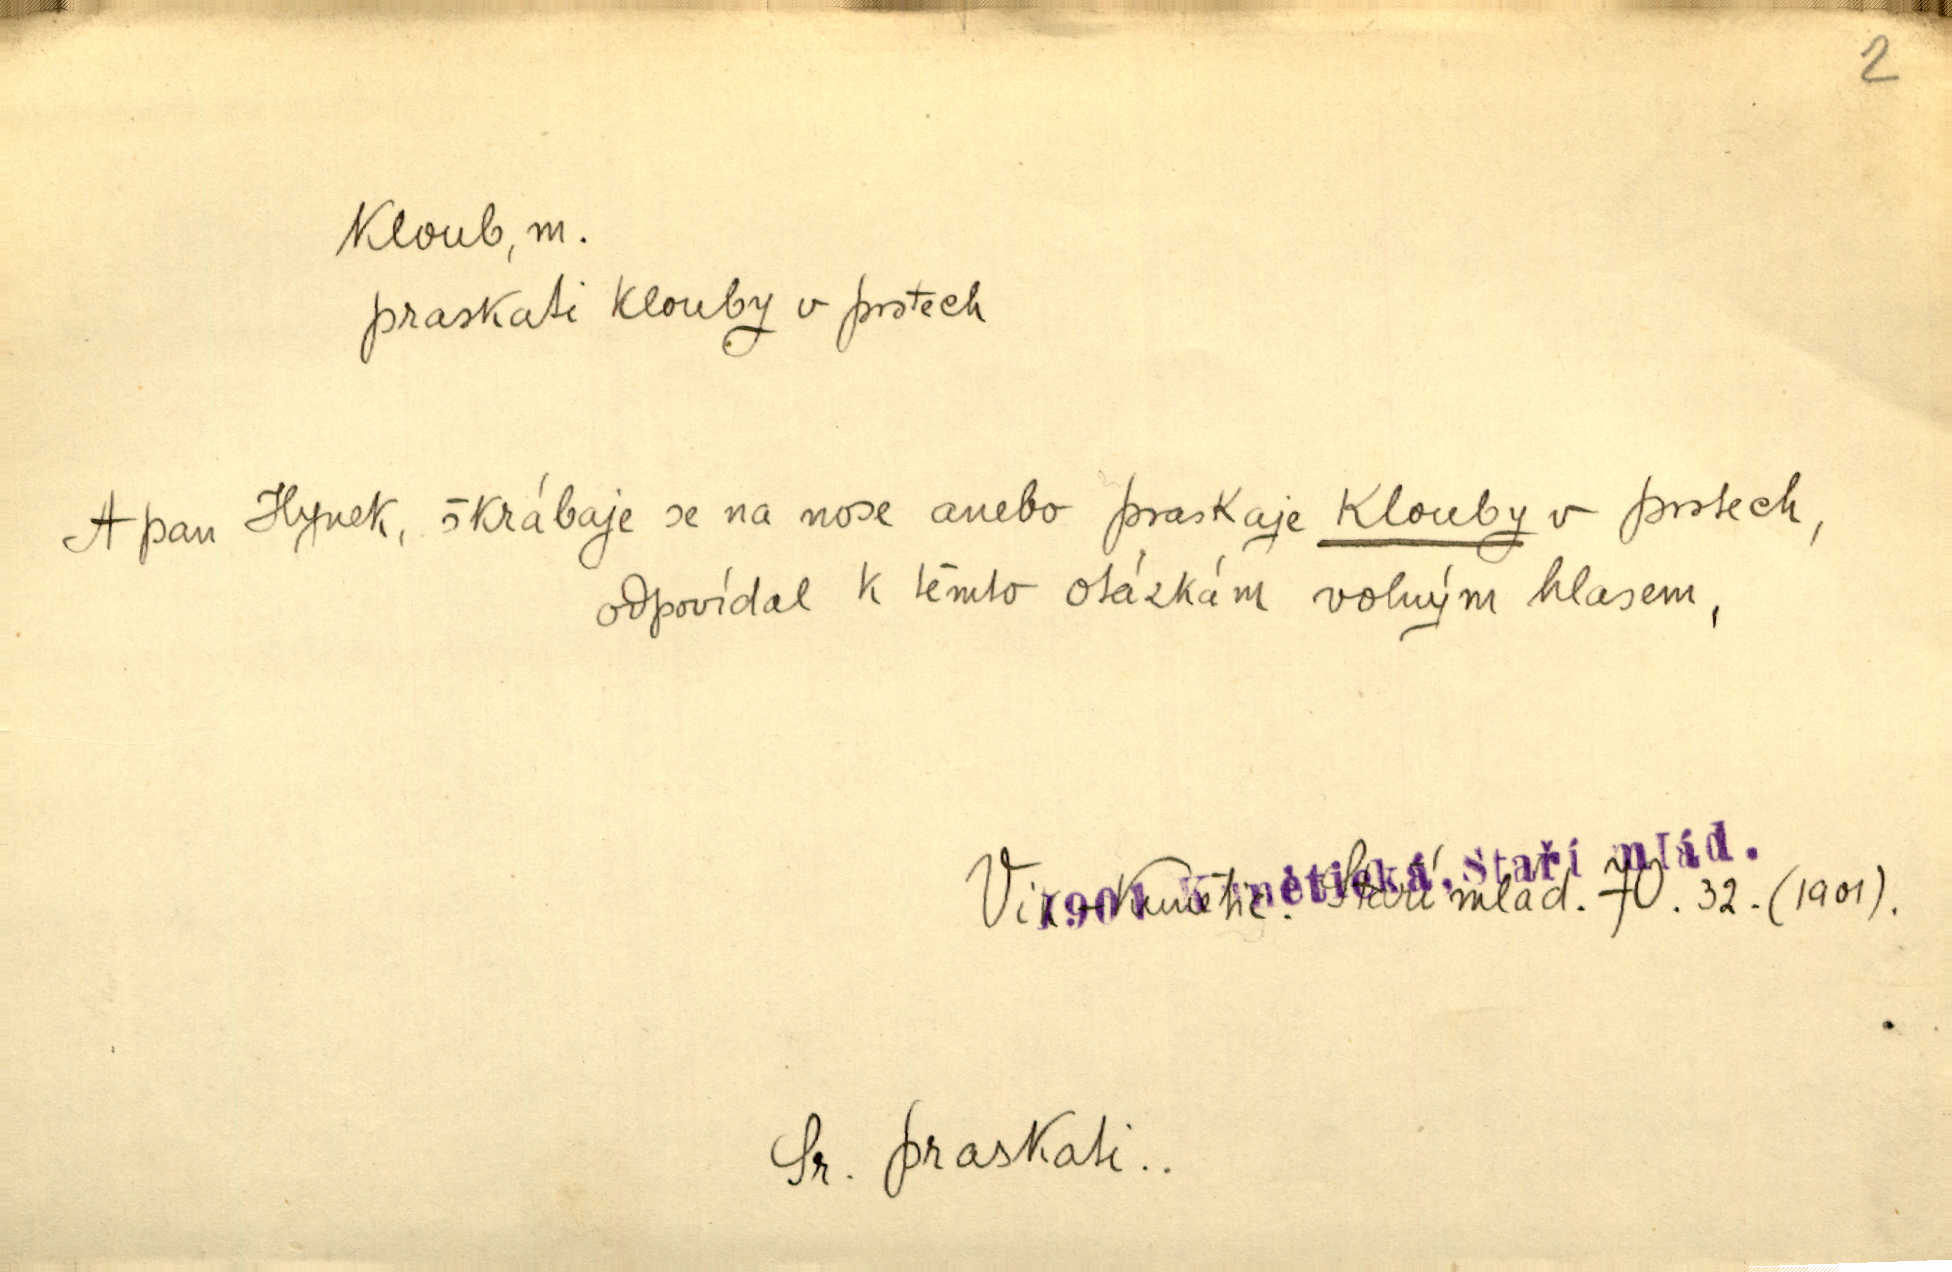 2
Kloub, m.
praskati klouby v prstech
A pan Hynek, škrábaje se na nose anebo praskaje klouby v prstech,
odpovídal k těmto otázkám volným hlasem,
1901 Kunětická, Staří mlád.
Vik. Kunětic. Staří mlád. 32. (1901).
Sr. praskati..